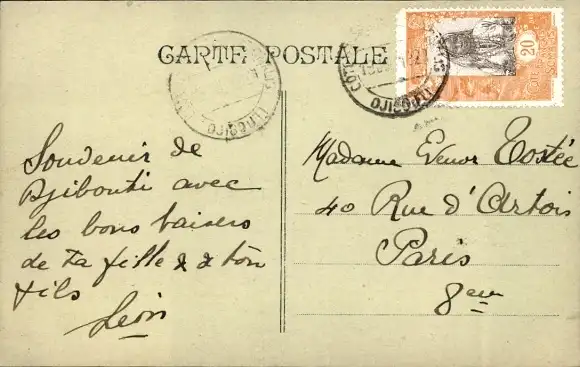 CARTE POSTALE
20
DJIBOUTI
DJIBOUTI
Souvenir de
Djibouti avec
les bons baisers
de ta fille & de ton
fils
Léon
Madame Tostée
40 Rue d'Artois
Paris
8eme